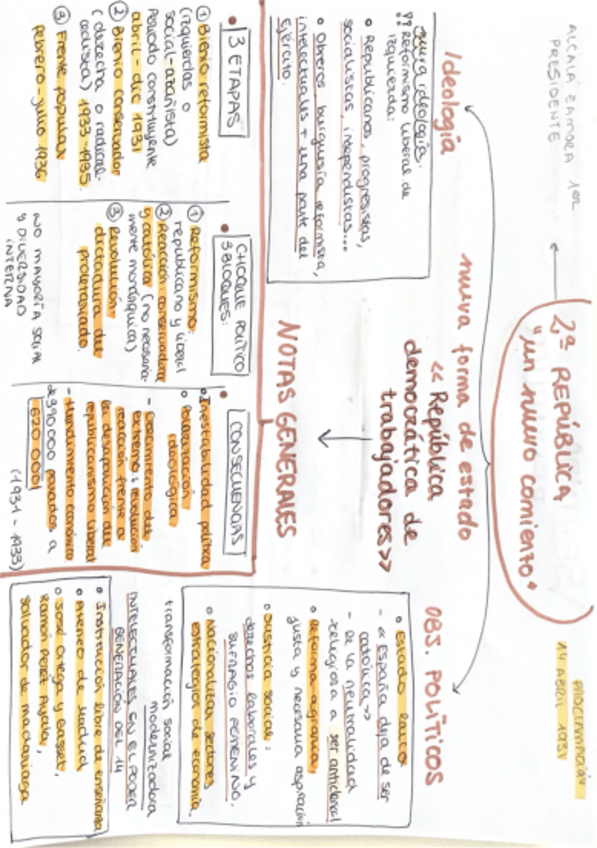 ALCALÁ ZAMORA 1er
PRESIDENTE
2ª REPÚBLICA
"un nuevo comienzo"
proclamación
14 ABRIL 1931
Ideología
ideología:
!! Reformismo liberal de
izquierda:
• Republicanos, progresistas,
socialistas, independistas...
• Obreros, burguesía reformista,
intelectuales + una parte del
Ejército.
nueva forma de estado
<< República
democrática de
trabajadores >>
OBJ. POLÍTICOS
• Estado laico
- << España deja de ser
católica >>
- De la neutralidad
religiosa a ser anticlerical
• Reforma agraria:
justa y necesaria aspiración
• Justicia social:
derechos laborales y
SUFRAGIO FEMENINO.
• Nacionalizar sectores
estratégicos de economía.
transformación social
modernizadora
INTELECTUALES EN EL PODER
GENERACIÓN DEL 14
• Institución libre de enseñanza
• Ateneo de Madrid
• José Ortega y Gasset,
Ramón Pérez Ayala,
Salvador de Madariaga
NOTAS GENERALES
• 3 ETAPAS
① Bienio reformista
(izquierdas o
social-azañista)
Periodo constituyente
abril - dic 1931
② Bienio conservador
(derecha o radical-
cedista) 1933-1935.
③ Frente popular
febrero-julio 1936
• CHOQUE POLÍTICO
3 BLOQUES:
① Reformismo:
republicano y liberal
② Reacción conservadora
y católica (no necesaria-
mente monárquica)
③ Revolución:
dictadura del
proletariado.
NO MAYORÍA SOCIAL
Y DIVERSIDAD
INTERNA
• CONSECUENCIAS
• Inestabilidad política
• Polarización
ideológica
- crecimiento del
extremo: revolución
reacción frente a
la desaparición del
republicanismo liberal
- Hundimiento económico
de 390 000 parados a
620 000!
(1931 - 1933)